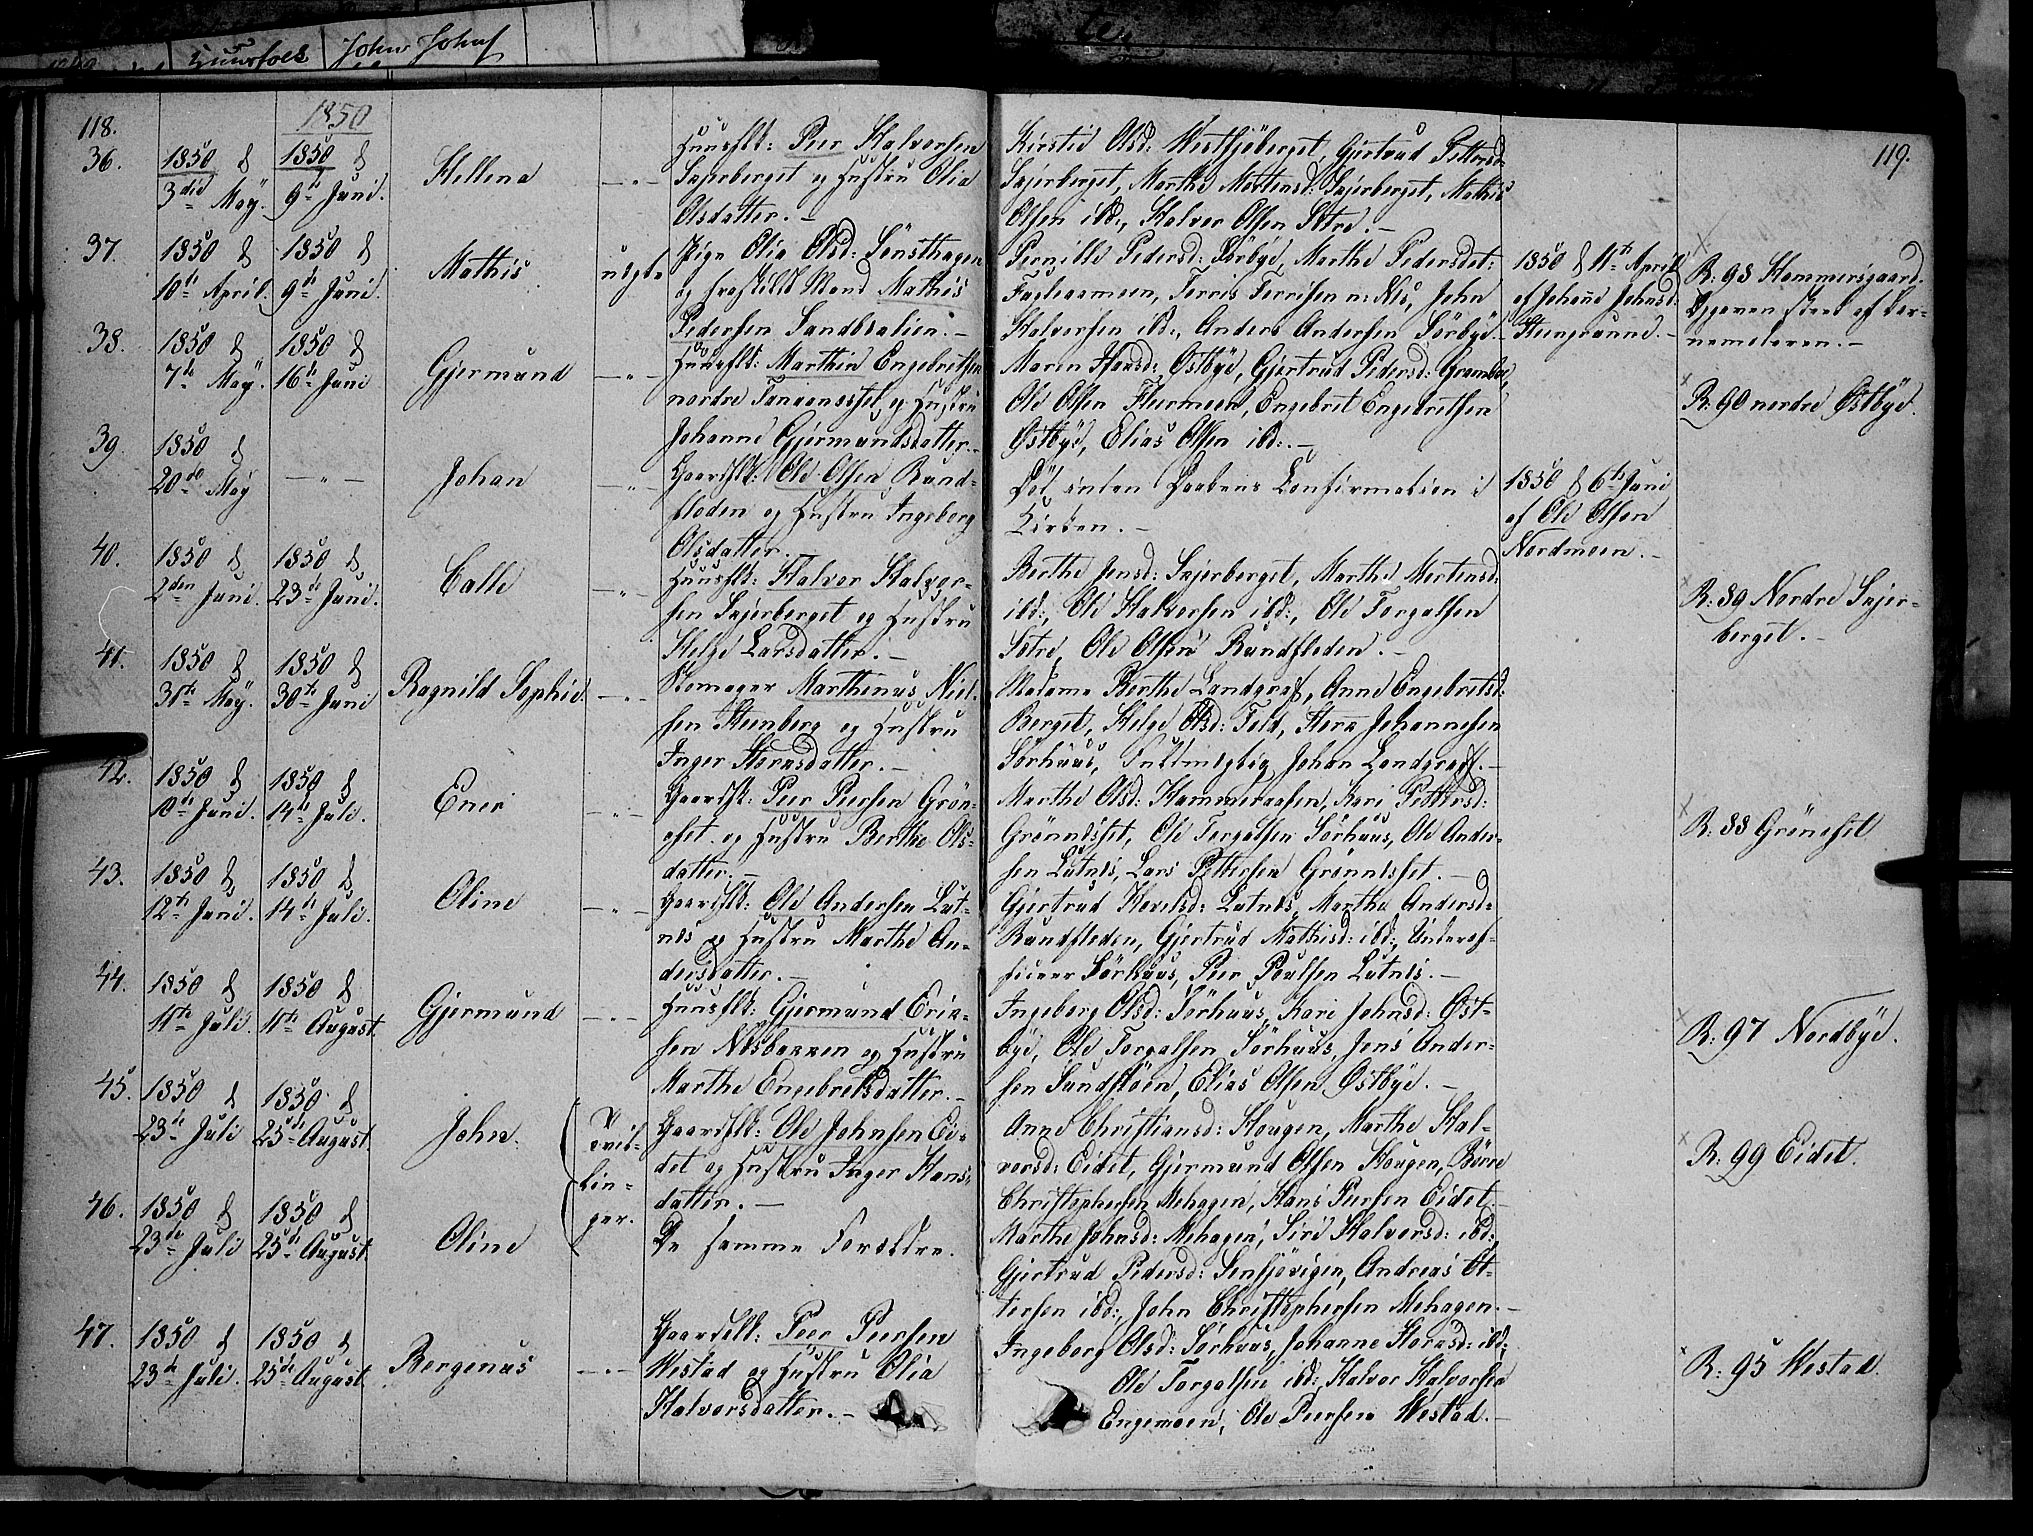 Huusfolk John Johns
118.
1850
36.
1850 d
3die May.
1850 d
9de Juni.
Hellena
— " —
Huusflk: Peer Halvorsen
Sæjerberget og Hustru Olia
Olsdatter. —
Kirstie Olsd: Westsjöberget, Gjertrud Pettersd:
Sæjerberget, Marthe Mortensd: Sæjerberget, Mathis
Olsen ibd:, Halvor Olsen Sætre. —
119.
37.
1850 d
10de April.
1850 d
9de Juni.
Mathis
uægte
Pige Olia Olsd: Lönsthagen
og fraskilt Mand Mathis
Pedersen Sandbæklien. —
Pernille Pedersd: Nörbye, Marthe Pedersdat:
Fagleaasmoen, Terris Terrisen n: Næs, John
Halvorsen ibd:, Anders Andersen Sörbye. —
1850 d 11te April
af Johanne Johnsd:
Steengrunne. —
R: 98 Hammersgaard.
Opgaven sted af Bar-
nemoderen. —
38.
1850 d
7de May.
1850 d
16de Juni
Gjermund
— " —
Huusflk: Marthin Engebrethsen
nordre Tanaanesset og Hustru
Johanne Gjermundsdatter. —
Maren Hansd: Östbye, Gjertrud Pedersd: Gramboe,
Ole Olsen Flermoen, Engebret Engebrethsen
Östbye, Elias Olsen ibd:. —
R: 90 nordre Østbye.
39.
1850 d
20de May
— " —
Johan
— " —
Gaardflk: Ole Olsen Rund-
floden og Hustru Ingeborg
Olsdatter. —
Död inden Daabens Confirmation i
Kirken. —
1850 d 6te Juni
af Ole Olsen
Nordmoen. —
40.
1850 d
2den Juni.
1850 d
23de Juni.
Calle
— " —
Huusflk: Halvor Halvor-
sen Sæjerberget og Hustru
Helge Larsdatter. —
Berthe Jensd: Sæjerberget, Marthe Mortensd:
ibd:, Ole Halvorsen ibd:, Ole Torgalsen
Sætre, Ole Olsen Rundfloden. —
R: 89 Nordre Sæjer-
berget. —
41.
1850 d
31te May.
1850 d
30te Juni
Ragnild Sophie.
— " —
Skomager Marthenus Niel-
sen Steenberg og Hustru
Inger Steensdatter. —
Madame Berthe Landgraff, Anne Engebretsd:
Berget, Helge Olsd: Fold, Steen Johannesen
Sörhuus, Fuldmegtig Johan Landgraff. —
42.
1850 d
10de Juni.
1850 d
14de Juli.
Ener
— " —
Gaardflk: Peer Persen Grön-
oset og Hustru Berthe Ols-
datter. —
Marthe Olsd: Hammeraasen, Kari Pettersd:
Grönnesset, Ole Torgalsen Sörhuus, Ole Ander-
sen Lutnes, Lars Pettersen Grönnesset. —
R: 88 Gröneset
43.
1850 d.
12te Juni.
1850 d
14de Juli.
Oline
— " —
Gaardflk: Ole Andersen Lut-
nes og Hustru Marthe An-
dersdatter. —
Gjertrud Hevelsd: Lutnes, Marthe Andersd:
Rundfloden, Gjertrud Mathisd: ibd:, Underof-
ficeer Sörhuus, Peer Poulsen Lutnes. —
44.
1850 d
11te Juli.
1850 d
11te August.
Gjermund
— " —
Huusflk: Gjermund Erik-
sen Næsbakken og Hustru
Marthe Engebretsdatter. —
Ingeborg Olsd: Sörhuus, Kari Johnsd: Öst-
bye, Ole Torgalsen Sörhuus, Jens Ander-
sen Sundflöen, Elias Olsen Østbye. —
R: 97 Nordbye.
45.
1850 d
23de Juli
1850 d
25de August.
John.
Tvil-
lin-
ger.
Gaardflk: Ole Johnsen Ei-
det og Hustru Inger Hans-
datter. —
Anne Christiansd: Hougen, Marthe Hal-
vorsd: Eidet, Gjermund Olsen Hougen, Börre
Christophersen Mehagen, Hans Persen Eidet. —
R: 99 Eidet.
46.
1850 d
23de Juli
1850 d
25de August.
Oline
De samme Forældre.
Marthe Johnsd: Mehagen, Siri Halvorsd: ibd:,
Gjertrud Pedersd: Sensjövigen, Andreas Ot-
tersen ibd:, John Christophersen Mehagen. —
47.
1850 d
23de Juli.
1850 d
25de August.
Bergenus
— " —
Gaardflk: Peer Peersen
Westad og Hustru Olia
Halvorsdatter. —
Ingeborg Olsd: Sörhuus, Johanne Steensd: ibd:,
Ole Torgalsen ibd:, Halvor Halvorsen
Engemoen, Ole Peersen Westad. —
R: 95 Westad.